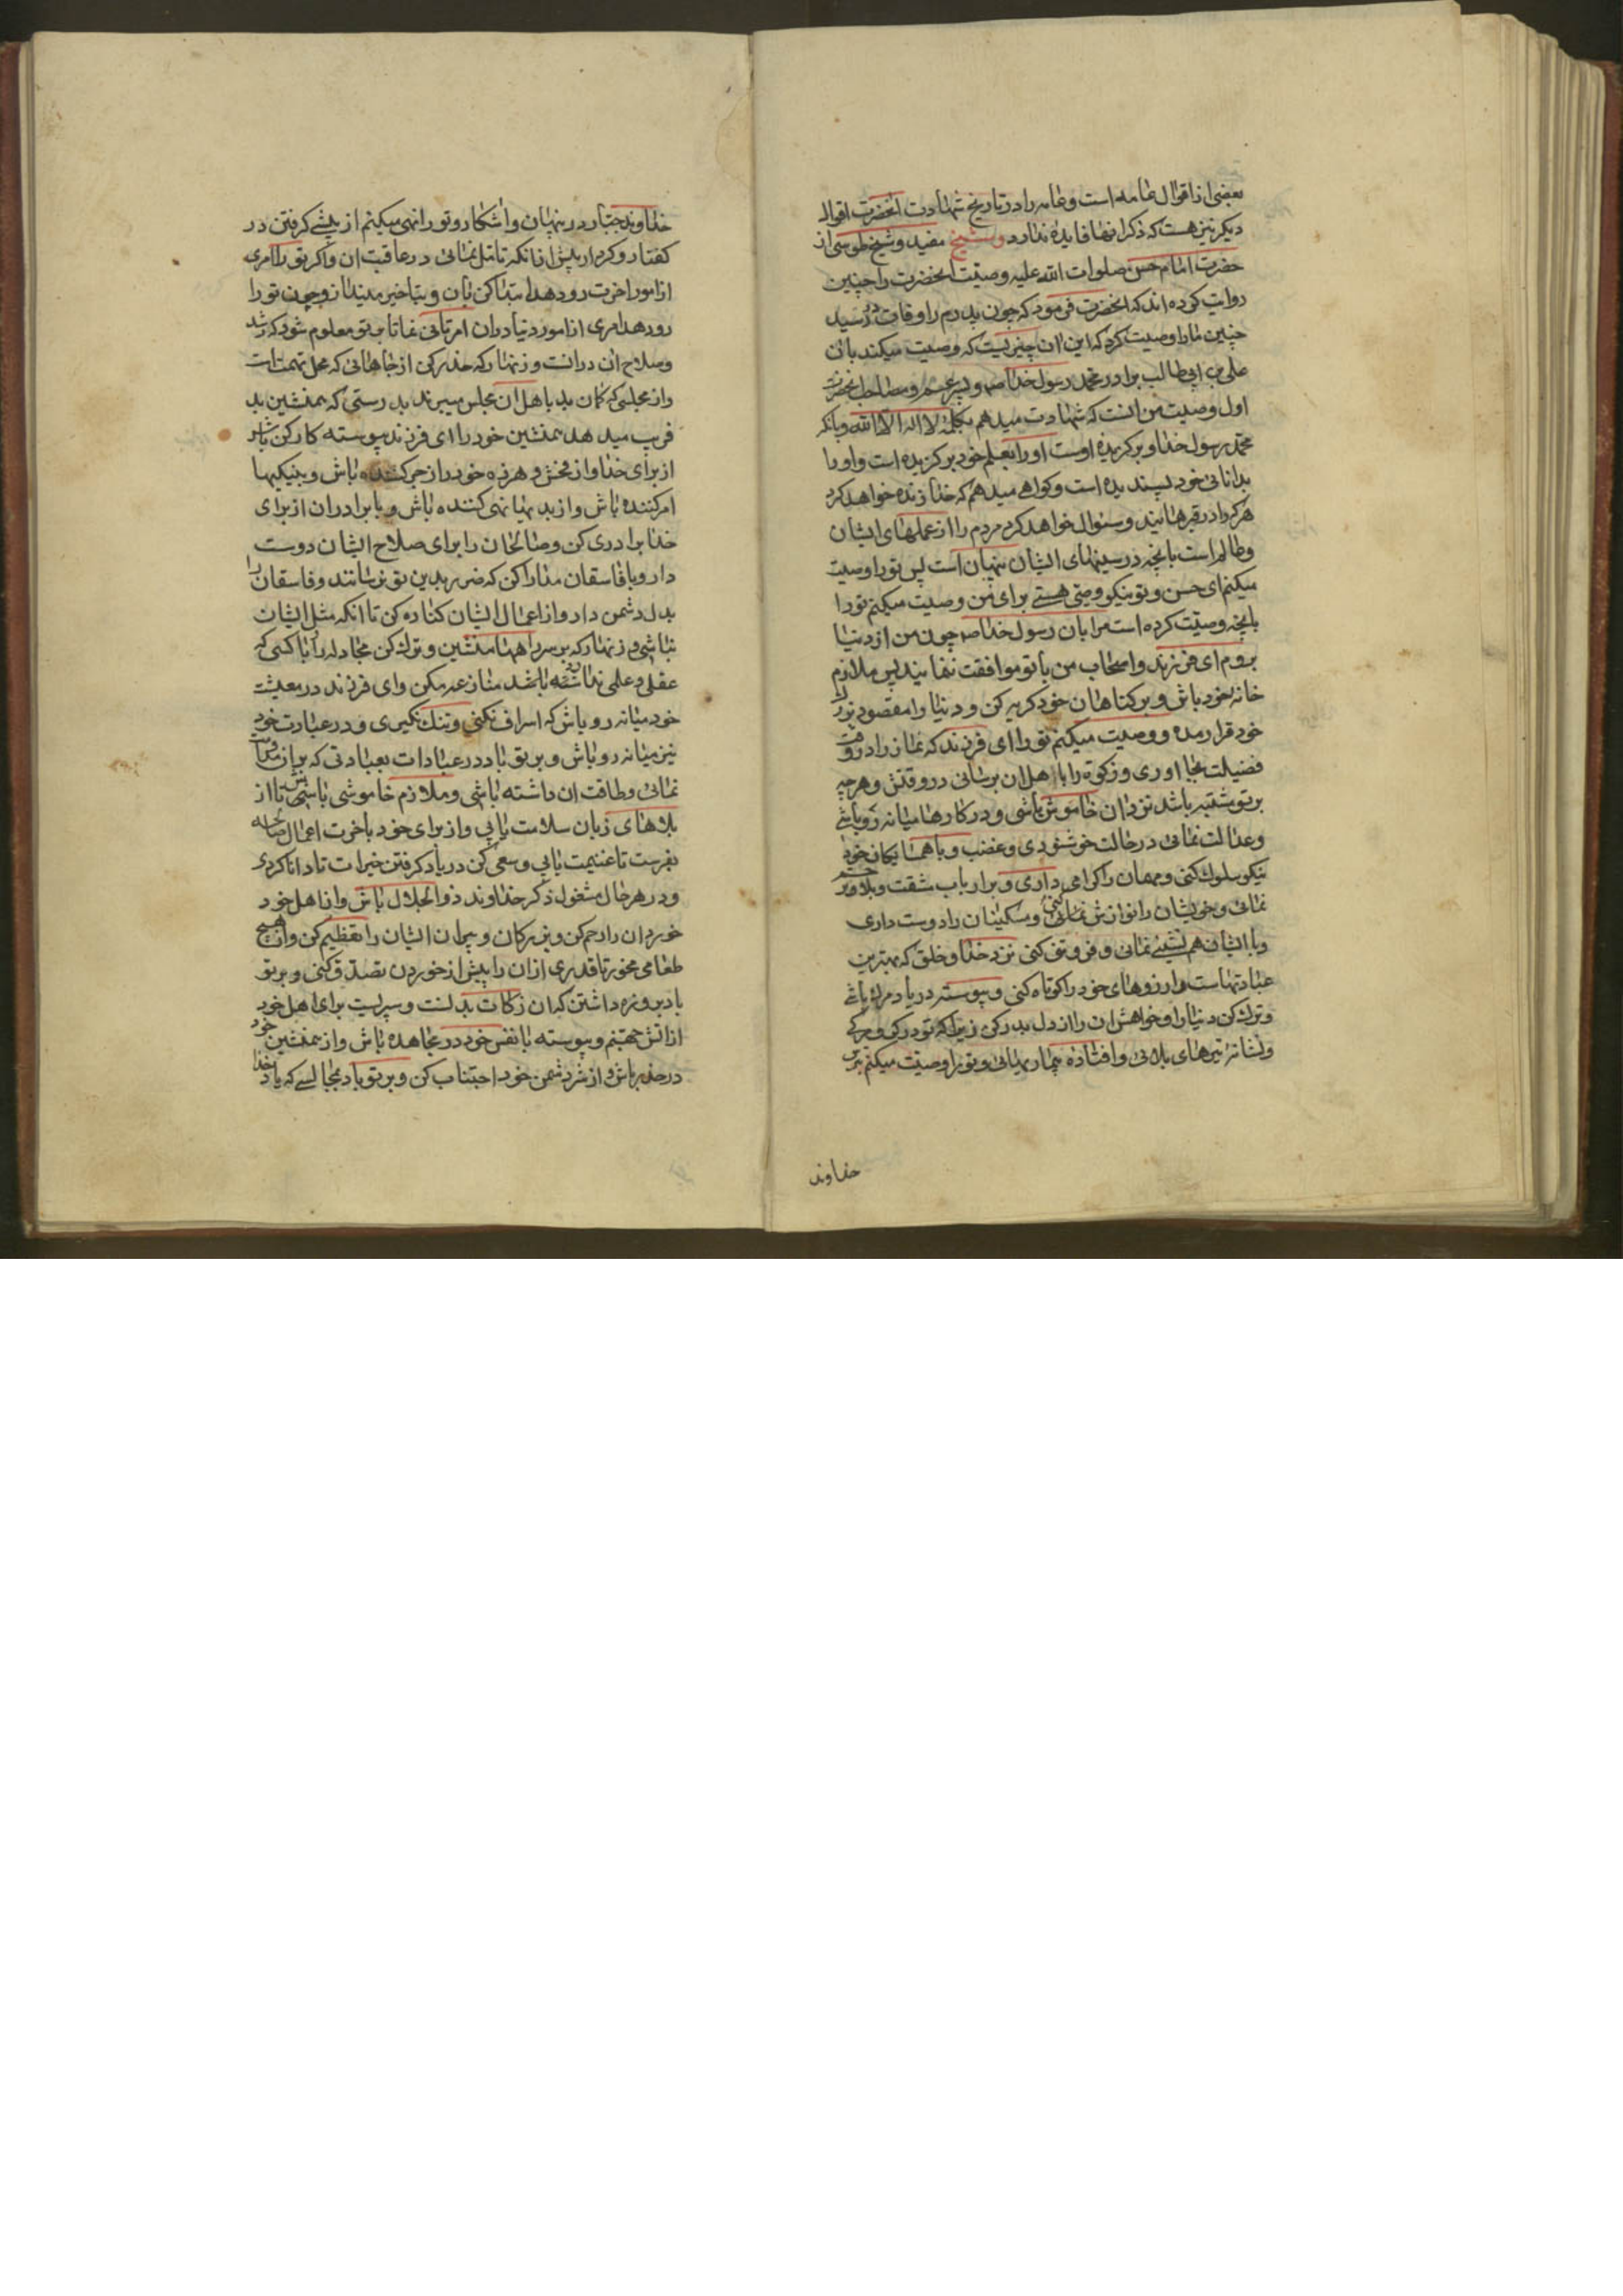 بعضی از اقوال عامه است و عامه را در تاریخ شهادت انحضرت اقوال
دیکر نیز هست که ذکر انها فایده ندارد و شیخ مفید و شیخ طوسی از
حضرت امام حسن صلوات الله علیه وصیت انحضرت را چنین
روایت کرده اند که انحضرت فرمود که چون پدرم را وفات در رسید
چنین ما را وصیت کرد که این ان چیزیست که وصیت میکند بان
علی بن ابی طالب برادر محمد رسول خدا ص و پسر عم و مصاحب انحضرت
اول وصیت من انست که شهادت میدهم بکلمهٔ لا اله الا الله و بانکه
محمد رسول خدا و برکزیده اوست او را بعلم خود برکزیده است و او را
بدانائی خود پسندیده است و کواهی میدهم که خدا زنده خواهد کرد
هر که را در قبرهاییند و سئوال خواهد کرد مردم را از عملهای ایشان
و عالم است بانچه در سینهای ایشان پنهان است پس تو را وصیت
میکنم ای حسن و تو نیکو وصیی هستی برای من وصیت میکنم تو را
بانچه وصیت کرده است مرا بان رسول خدا ص چون من از دنیا
بروم ای فرزند و اصحاب من با تو موافقت ننمایند پس ملازم
خانه خود باش و بر کناهان خود کریه کن و دنیا را مقصود بزرک
خود قرار مده و وصیت میکنم تو را ای فرزند که نماز را در وقت
فضیلت بجا اوری و زکوة را باهل ان برسانی در وقتش و هر چه
بر تو مشتبه باشد نزد ان خاموش باشی و در کارها میانه رو باشی
و عدالت نمائی در حالت خوشنودی و غضب و با همسایکان خود
نیکو سلوک کنی و مهمان را کرامی داری و بر ارباب مشقت و بلا رحم
نمائی و خویشان را نوازش نمائی کنی و مسکینان را دوست داری
و با ایشان هم نشینی نمائی و فروتنی کنی نزد خدا و خلق که بهترین
عبادتهاست و ارزوهای خود را کوتاه کنی و پیوسته در یاد مرک باشی
و ترک کن دنیا را و خواهش ان را از دل بدر کن زیرا که تو در کرو مرکی
و نشانهٔ تیرهای بلائی و افتاده بیماریهائی و تو را وصیت میکنم بترس
خداوند
خداوند جبار در پنهان و اشکار و تو را نهی میکنم از پیشی کرفتن در
کفتار و کردار پیش از انکه تامل نمائی در عاقبت ان و اکر تو را امری
از امور اخرت رو دهد ابتدا کن بان و بتاخیر مینداز و چون تو را
رو دهد امری از امور دنیا در ان امر تانی نما تا بر تو معلوم شود که رشد
و صلاح ان در انست و زنهار که حذر کن از جاهائی که محل تهمت است
و از مجلسی که کمان بد باهل ان مجلس میبرند بدرستی که همنشین بد
فریب میدهد همنشین خود را ای فرزند پیوسته کار کن باش
از برای خدا و از فحش و هرزه خود را زجر کننده باش و بنیکیها
امر کننده باش و از بدیها نهی کننده باش و با برادران از برای
خدا برادری کن و صالحان را برای صلاح ایشان دوست
دار و با فاسقان مدارا کن که ضرر بدین تو نرسانند و فاسقان را
بدل دشمن دار و از اعمال ایشان کناره کن تا انکه مثل ایشان
نباشی و زنهار که بر سر راهها منشین و ترک کن مجادله را با کسی که
عقلی و علمی نداشته باشد منازعه مکن و ای فرزند در معیشت
خود میانه رو باش که اسراف نکنی و تنک نکیری و در عبادت خود
نیز میانه رو باش و بر تو باد در عبادات بعبادتی که بر ان مداومت
نمائی و طاقت ان داشته باشی و ملازم خاموشی باش تا از
بلاهای زبان سلامت یابی و از برای خود باخرت اعمال صالحه
بفرست تا غنیمت یابی و سعی کن در یاد کرفتن خیرات تا دانا کردی
و در هر حال مشغول ذکر خداوند ذو الجلال باش و از اهل خود
خوردان را رحم کن و بزرکان و پیران ایشان را تعظیم کن و از هیچ
طعامی مخور تا قدری از ان را پیش از خوردن تصدق کنی و بر تو
باد بروزه داشتن که ان زکات بدنست و سپریست برای اهل خود
از اتش جهنم و پیوسته با نفس خود در مجاهده باش و از همنشین خود
در حذر باش و از شر دشمن خود اجتناب کن و بر تو باد بمجالسی که یاد خدا